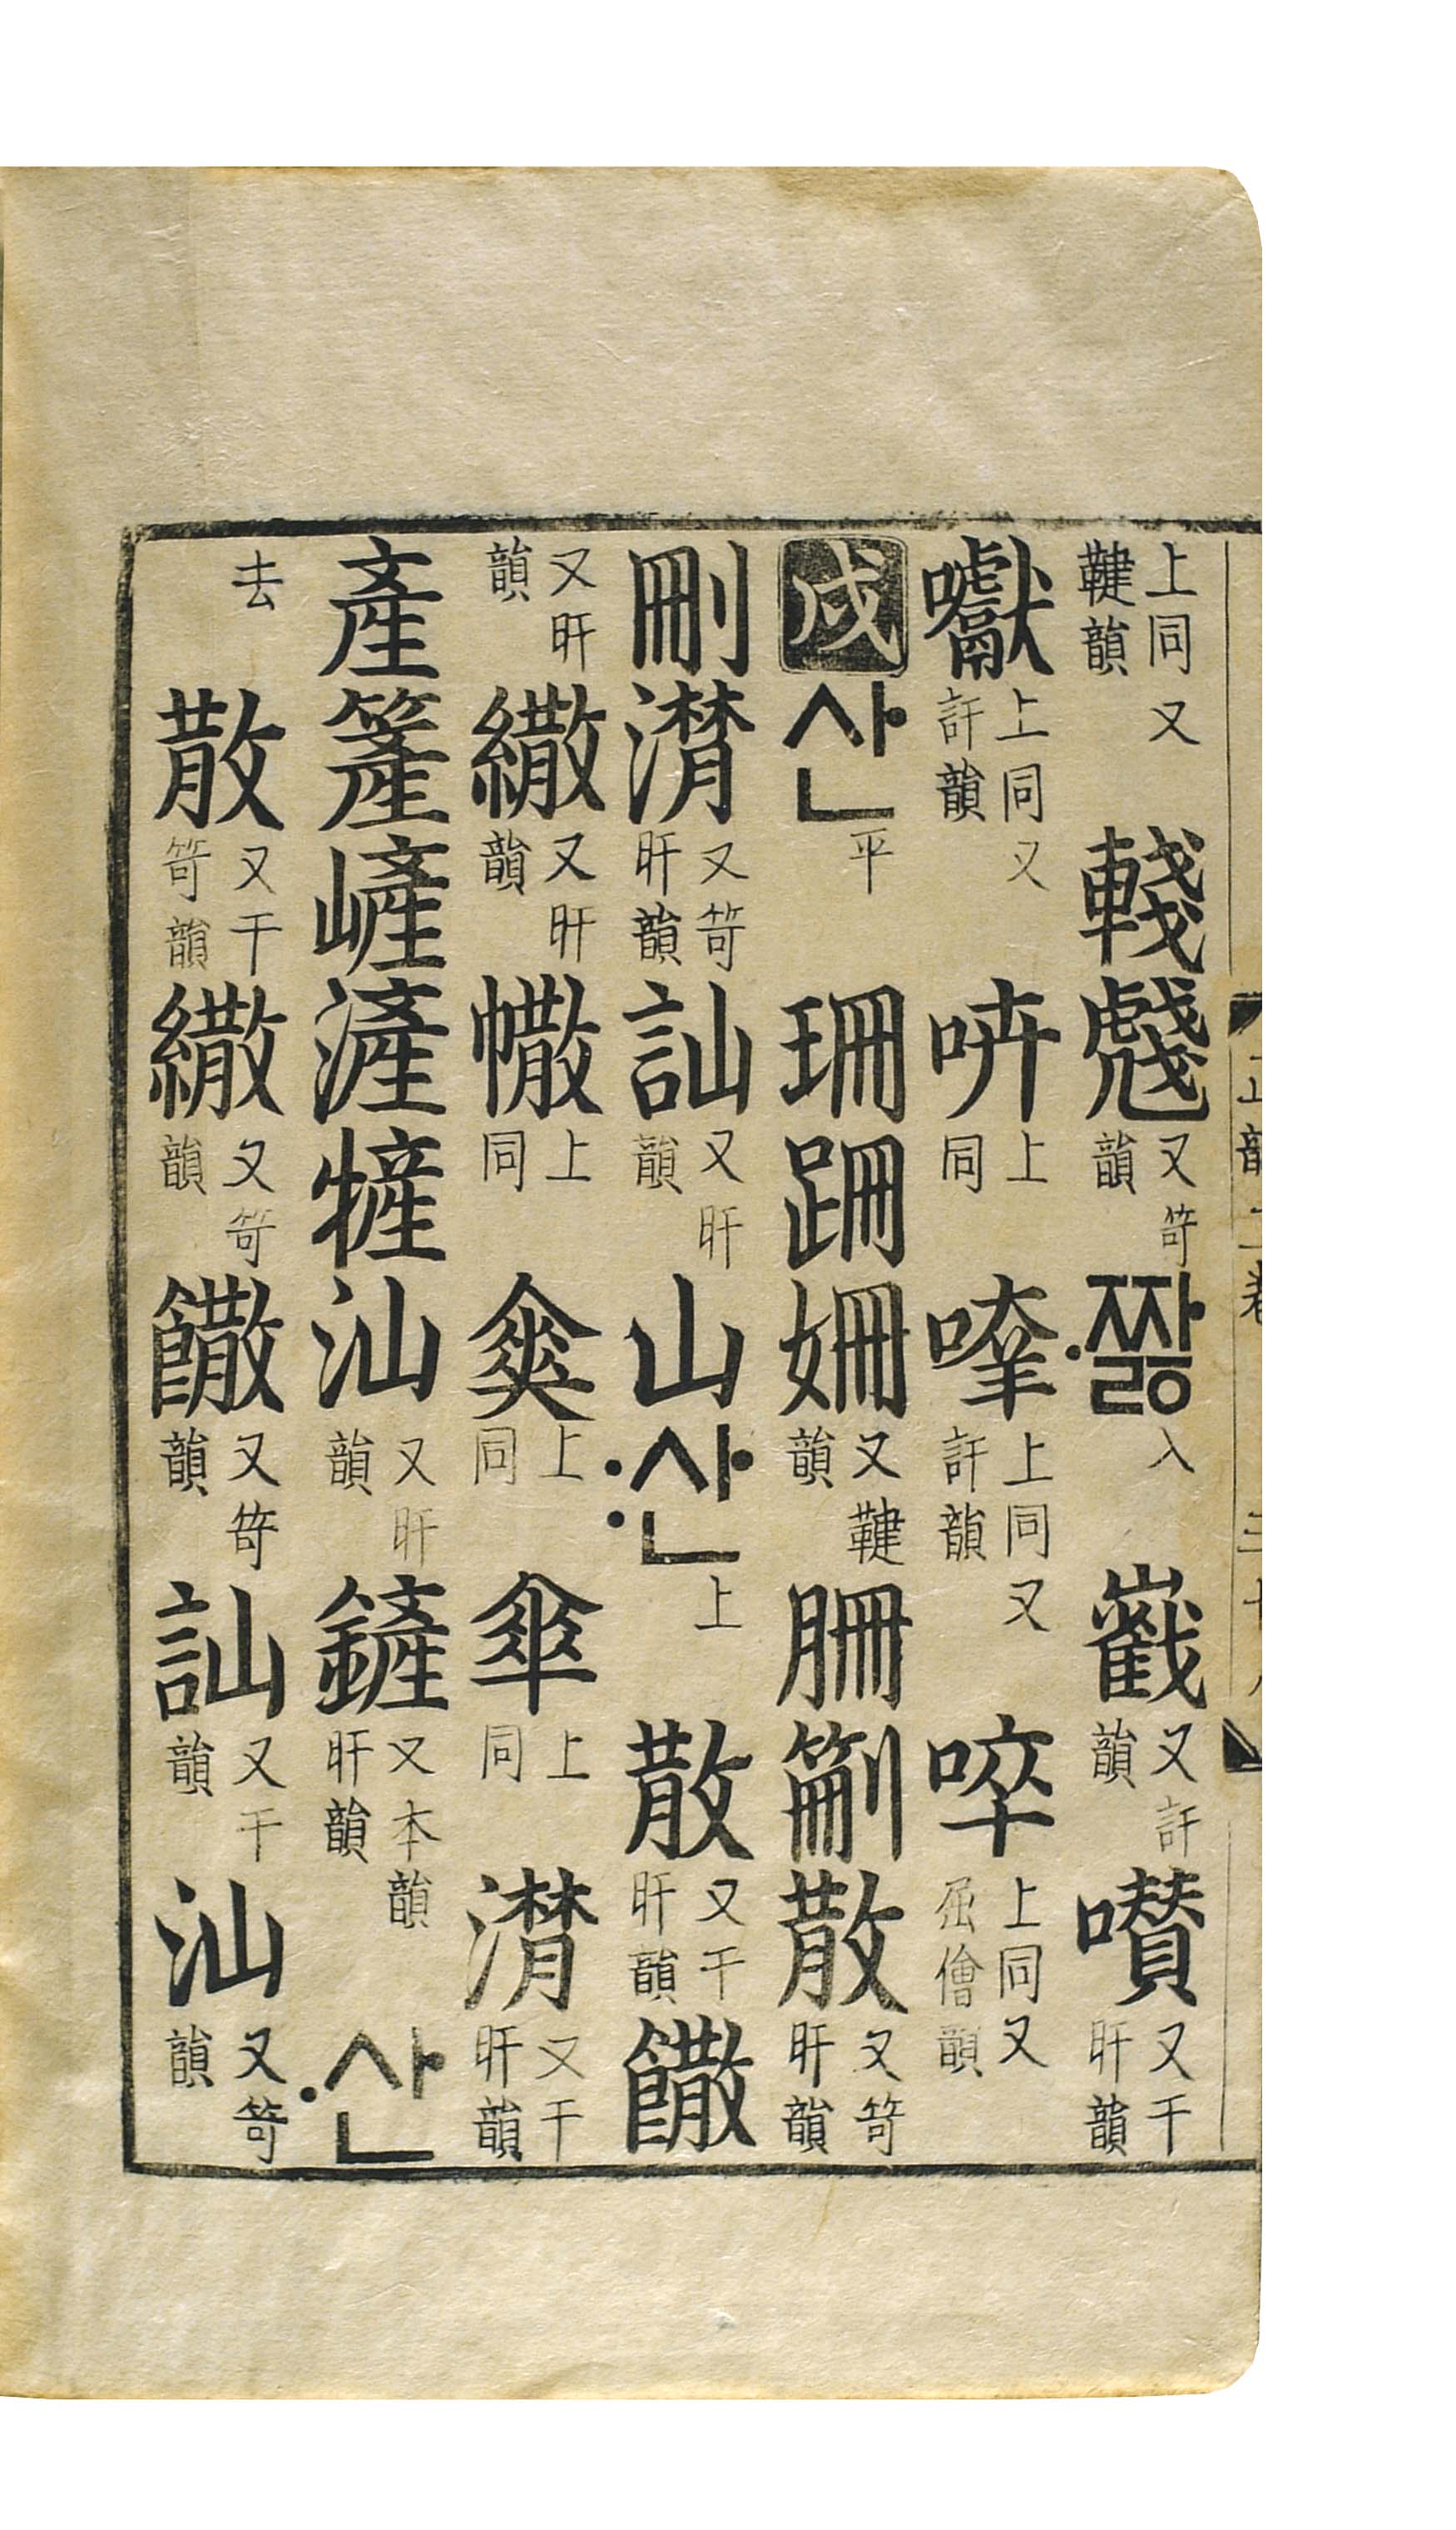 上同又鞬韻 輚虥 又笴韻 ·짜ᇙ 入 巀 又訐韻 囋 又干旰韻
囐 上同又訐韻 上同 上同又訐韻 啐 上同又屈儈韻
戌 산 平 珊跚姍 又鞬韻 散 又笴旰韻
刪潸 又笴旰韻 訕 又旰韻 山 :산 上 散 又干旰韻 饊
又旰韻 繖 又旰韻 上同 上同 傘 上同 潸 又干旰韻
產簅嵼滻㹌汕 又旰韻 鏟 又本韻旰韻 ·산
去 散 又干笴韻 繖 又笴韻 饊 又笴韻 訕 又干韻 汕 又笴韻